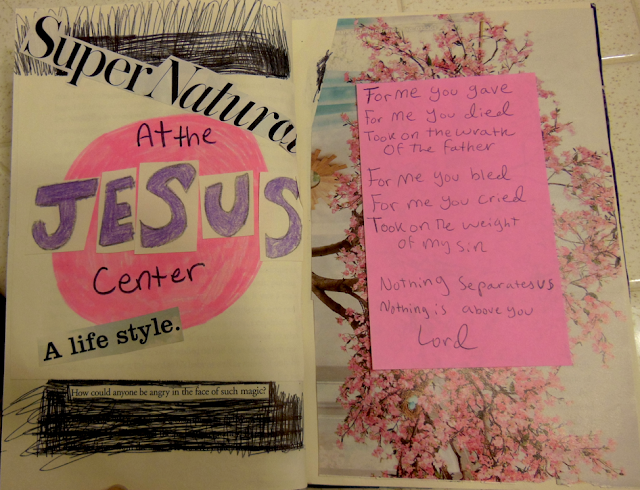 Super Natural
At the
JESUS
Center
A life style.
How could anyone be angry in the face of such magic?
For me you gave
For me you died
Took on the wrath
of the father
For me you bled
For me you cried
Took on the weight
of my sin
Nothing separates us
Nothing is above you
Lord